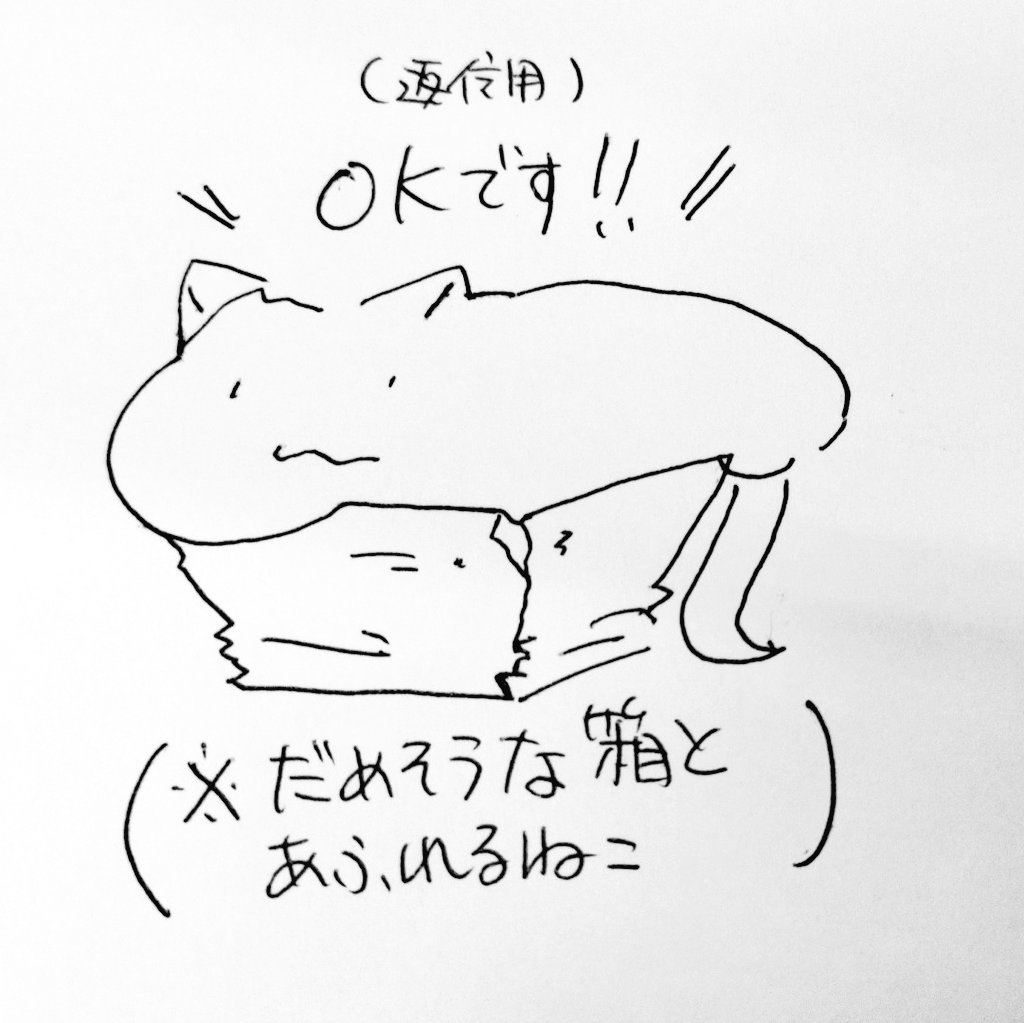 (返信用)
OKです!!
(※だめそうな箱と
あふれるねこ)